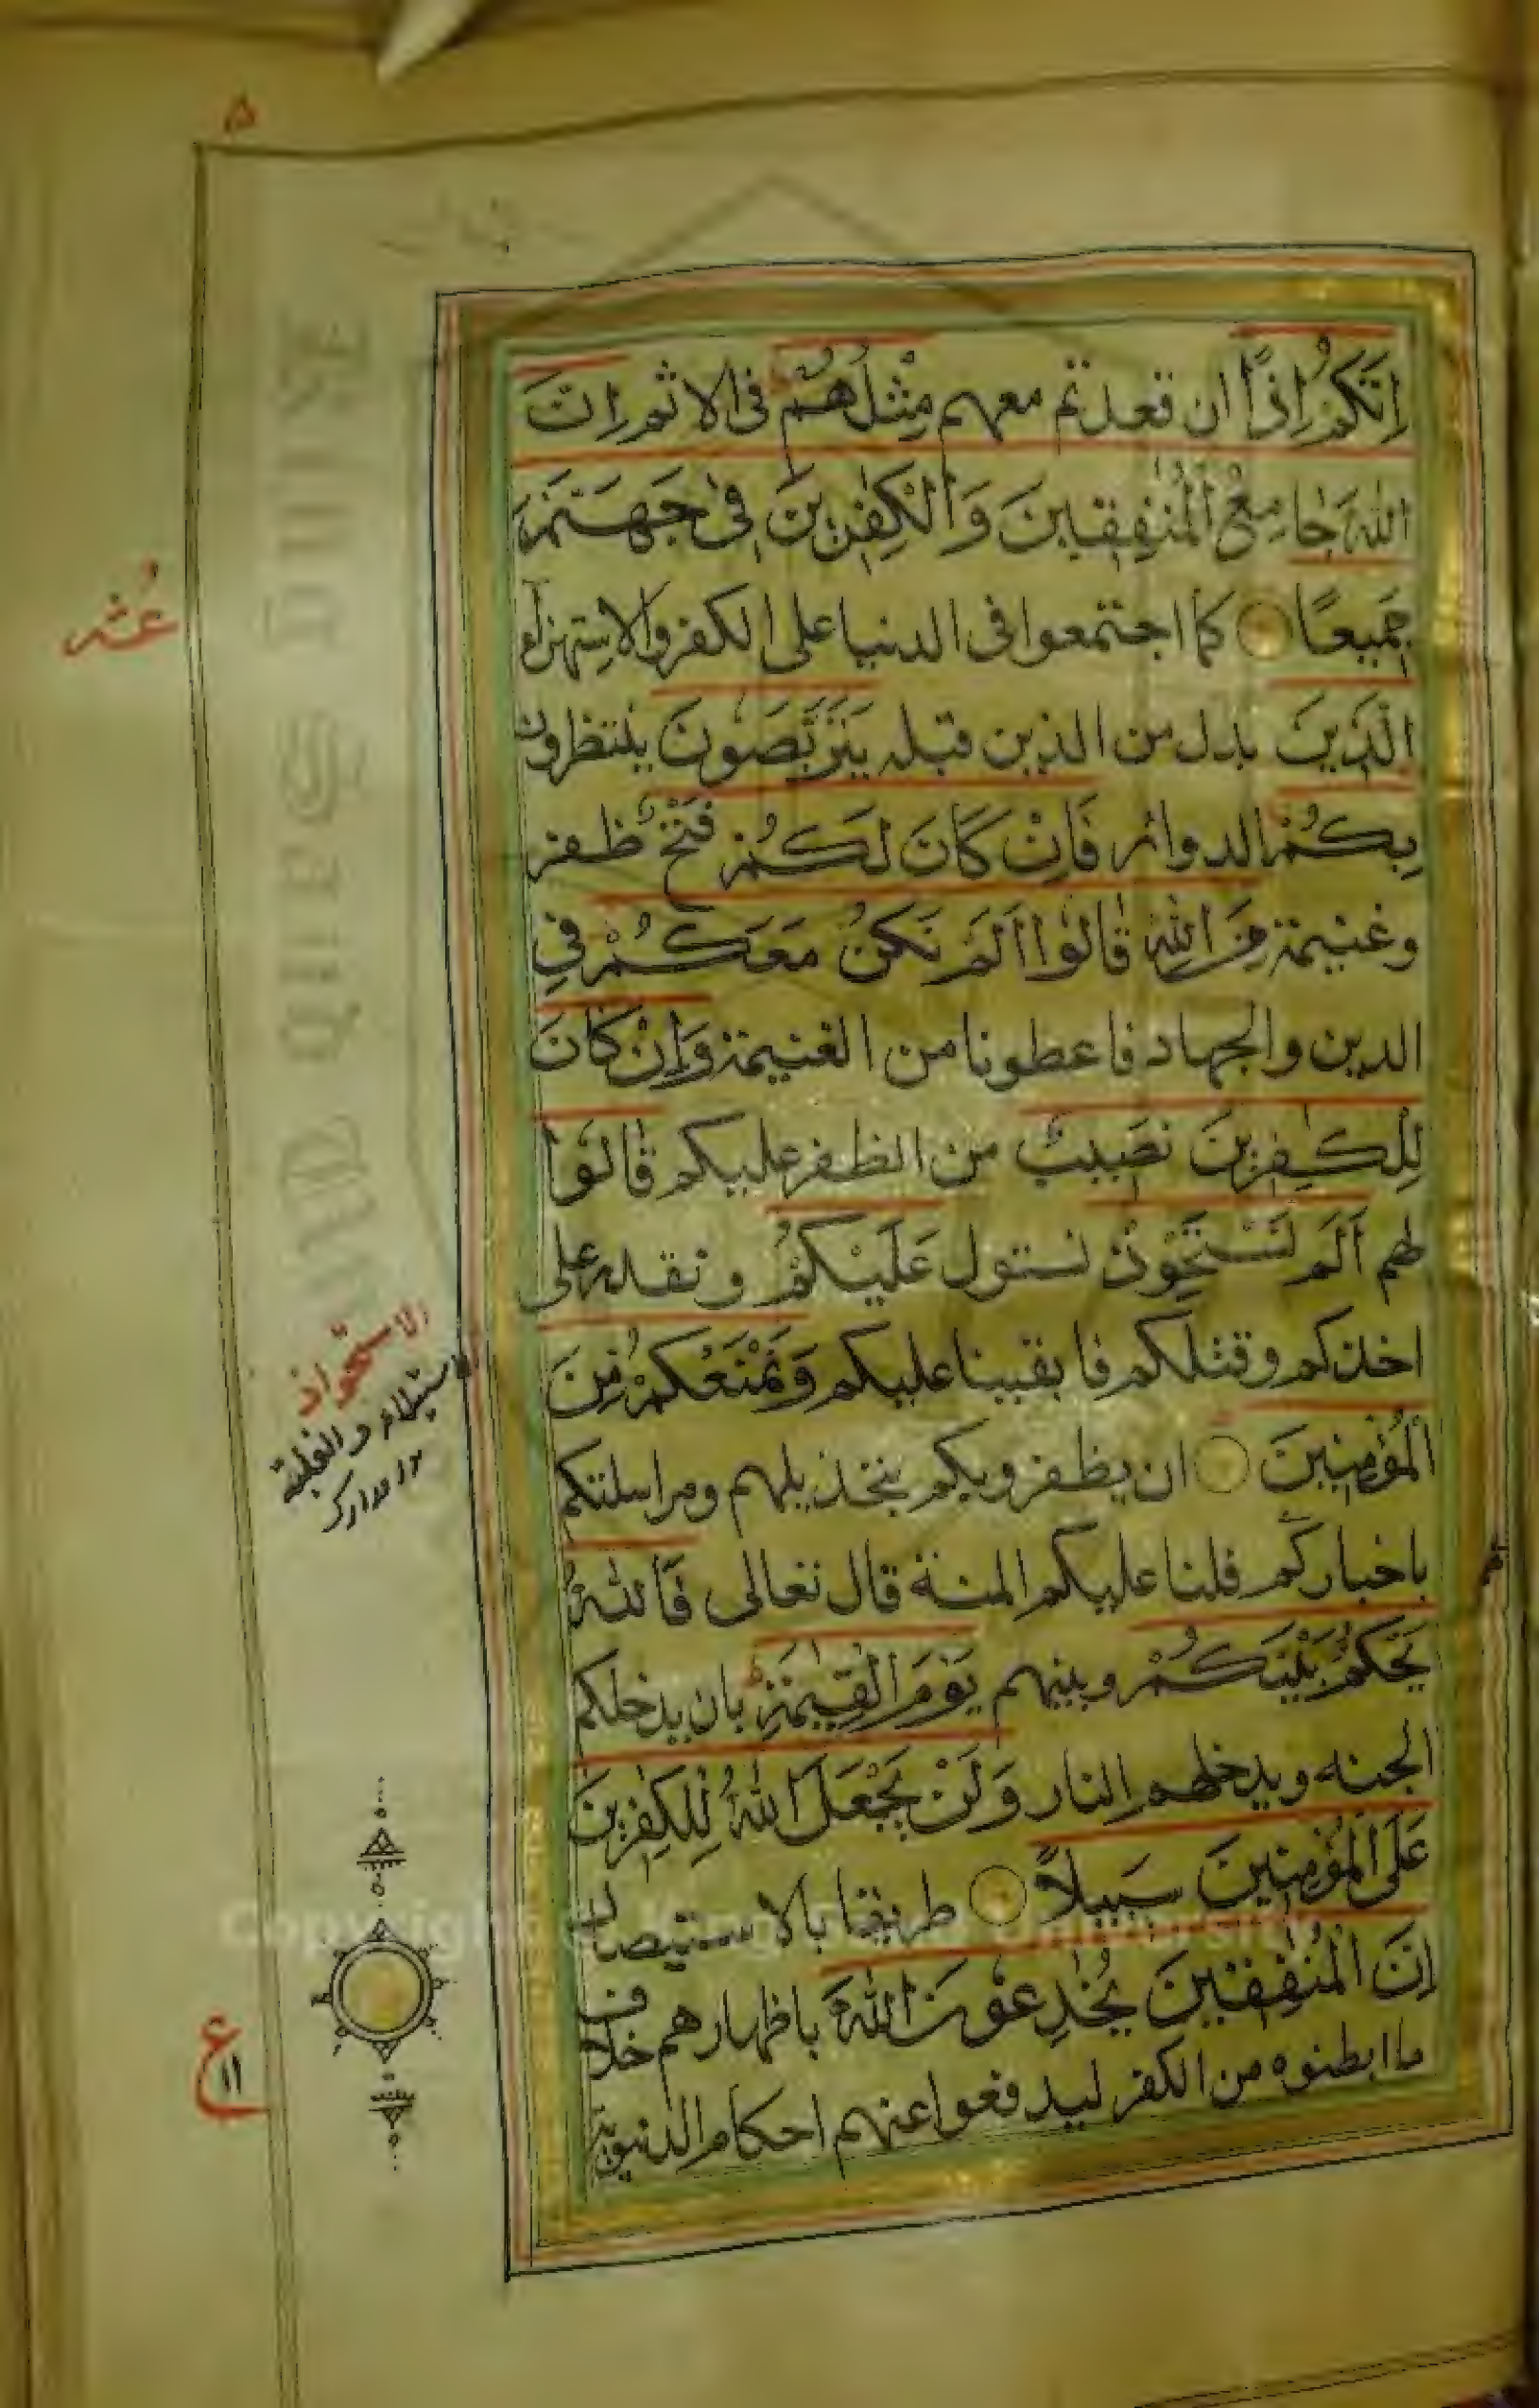 ۵
اِنَّكُمْ اِذًا ان قعدتم معهم مِثْلُهُمْ فى الاثم اِنَّ
اللّٰهَ جَامِعُ الْمُنٰفِقِينَ وَالْكٰفِرِينَ فِى جَهَنَّمَ
جَمِيعًا كما اجتمعوا فى الدنيا على الكفر والاستهزاء
الَّذِينَ بدل من الذين قبله يَتَرَبَّصُونَ ينتظرون
بِكُمْ الدوائر فَاِنْ كَانَ لَكُمْ فَتْحٌ ظفر
وغنيمة مِنَ اللّٰهِ قَالُوا اَلَمْ نَكُنْ مَعَكُمْ فى
الدين والجهاد فاعطونا من الغنيمة وَاِنْ كَانَ
لِلْكٰفِرِينَ نَصِيبٌ من الظفر عليكم قَالُوا
لهم اَلَمْ نَسْتَحْوِذْ نستول عَلَيْكُمْ ونقدر على
اخذكم وقتلكم فابقينا عليكم وَنَمْنَعْكُمْ مِنَ
الْمُؤْمِنِينَ ان يظفروبكم بتخذيلهم ومراسلتكم
باخباركم فلنا عليكم المنة قال تعالى فَاللّٰهُ
يَحْكُمُ بَيْنَكُمْ وبينهم يَوْمَ الْقِيٰمَةِ بان يدخلكم
الجنه ويدخلهم النار وَلَنْ يَجْعَلَ اللّٰهُ لِلْكٰفِرِينَ
عَلَى الْمُؤْمِنِينَ سَبِيلًا طريقا بالاستيصال
اِنَّ الْمُنٰفِقِينَ يُخٰدِعُونَ اللّٰهَ باظهارهم خلاف
ما ابطنوه من الكفر ليدفعوا عنهم احكام الدنيوية
الاستحواذ
الاستيلاء والغلبة
مدارك
ع
۱۱
Copyright © King Saud University